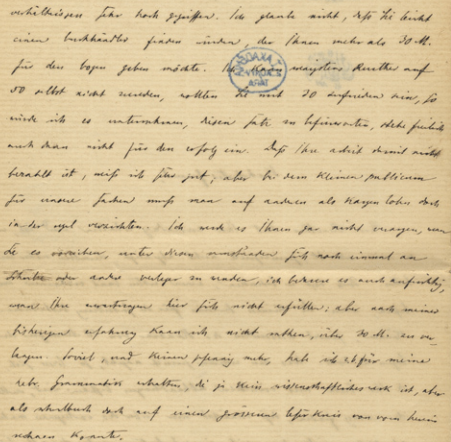 verhältnissen sehr hoch gegriffen. Ich glaube nicht, daß Sie leicht
einen buchhändler finden würden, der Ihnen mehr als 30 M.
für den bogen geben möchte. Ich kann wenigstens Reuther auf
50 selbst nicht wollten Sie mit 30 zufrieden sein, so
würde ich es unternehmen, diesen satz zu befürworten, stehe freilich
auch dann nicht für den erfolg ein. Daß Ihre arbeit damit nicht
bezahlt ist, weiß ich sehr gut; aber bei dem kleinen publicum
für unsere sachen muß man auf anderen als kargen lohn doch
in der regel verzichten. Ich werde es Ihnen gar nicht verargen, wenn
Sie es vorziehen, unter diesen umständen sich noch einmal an
oder andere verleger zu wenden, ich bedaure es auch aufrichtig,
wenn Ihre erwartungen hier sich nicht erfüllen; aber nach meiner
bisherigen erfahrung kann ich nicht rathen, über 30 M. zu ver-
langen. Soviel, und keinen pfennig mehr, habe ich für meine
hebr. Grammatik erhalten, die ja kein wissenschaftliches werk ist, aber
als schulbuch doch auf einen grösseren von vorn herein
rechnen konnte.